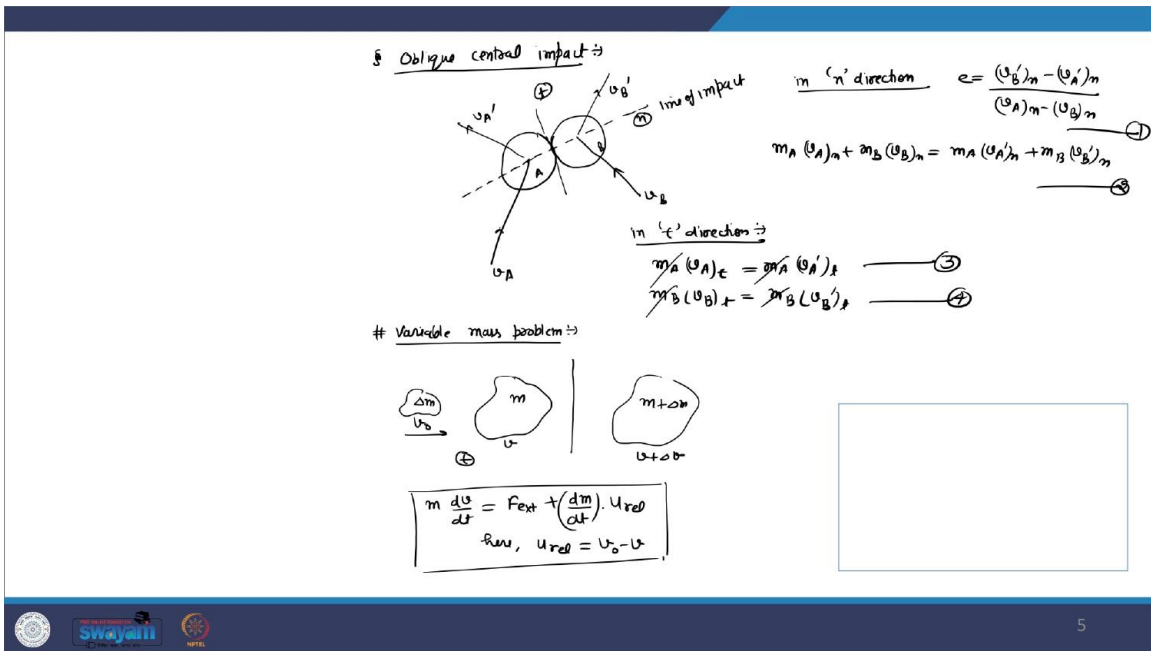 § Oblique central impact :→
t
n
line of impact
vA'
vB'
A
B
vA
vB
in 'n' direction e = ((vB')n − (vA')n) / ((vA)n − (vB)n) ①
mA (vA)n + mB (vB)n = mA (vA')n + mB (vB')n
②
in 't' direction :→
mA (vA)t = mA (vA')t ③
mB (vB)t = mB (vB')t ④
# Variable mass problem :→
Δm
m
m+Δm
v₀
v
v+Δv
t
m dv/dt = Fext + (dm/dt) . urel
here, urel = v₀ − v
swayam
NPTEL
5